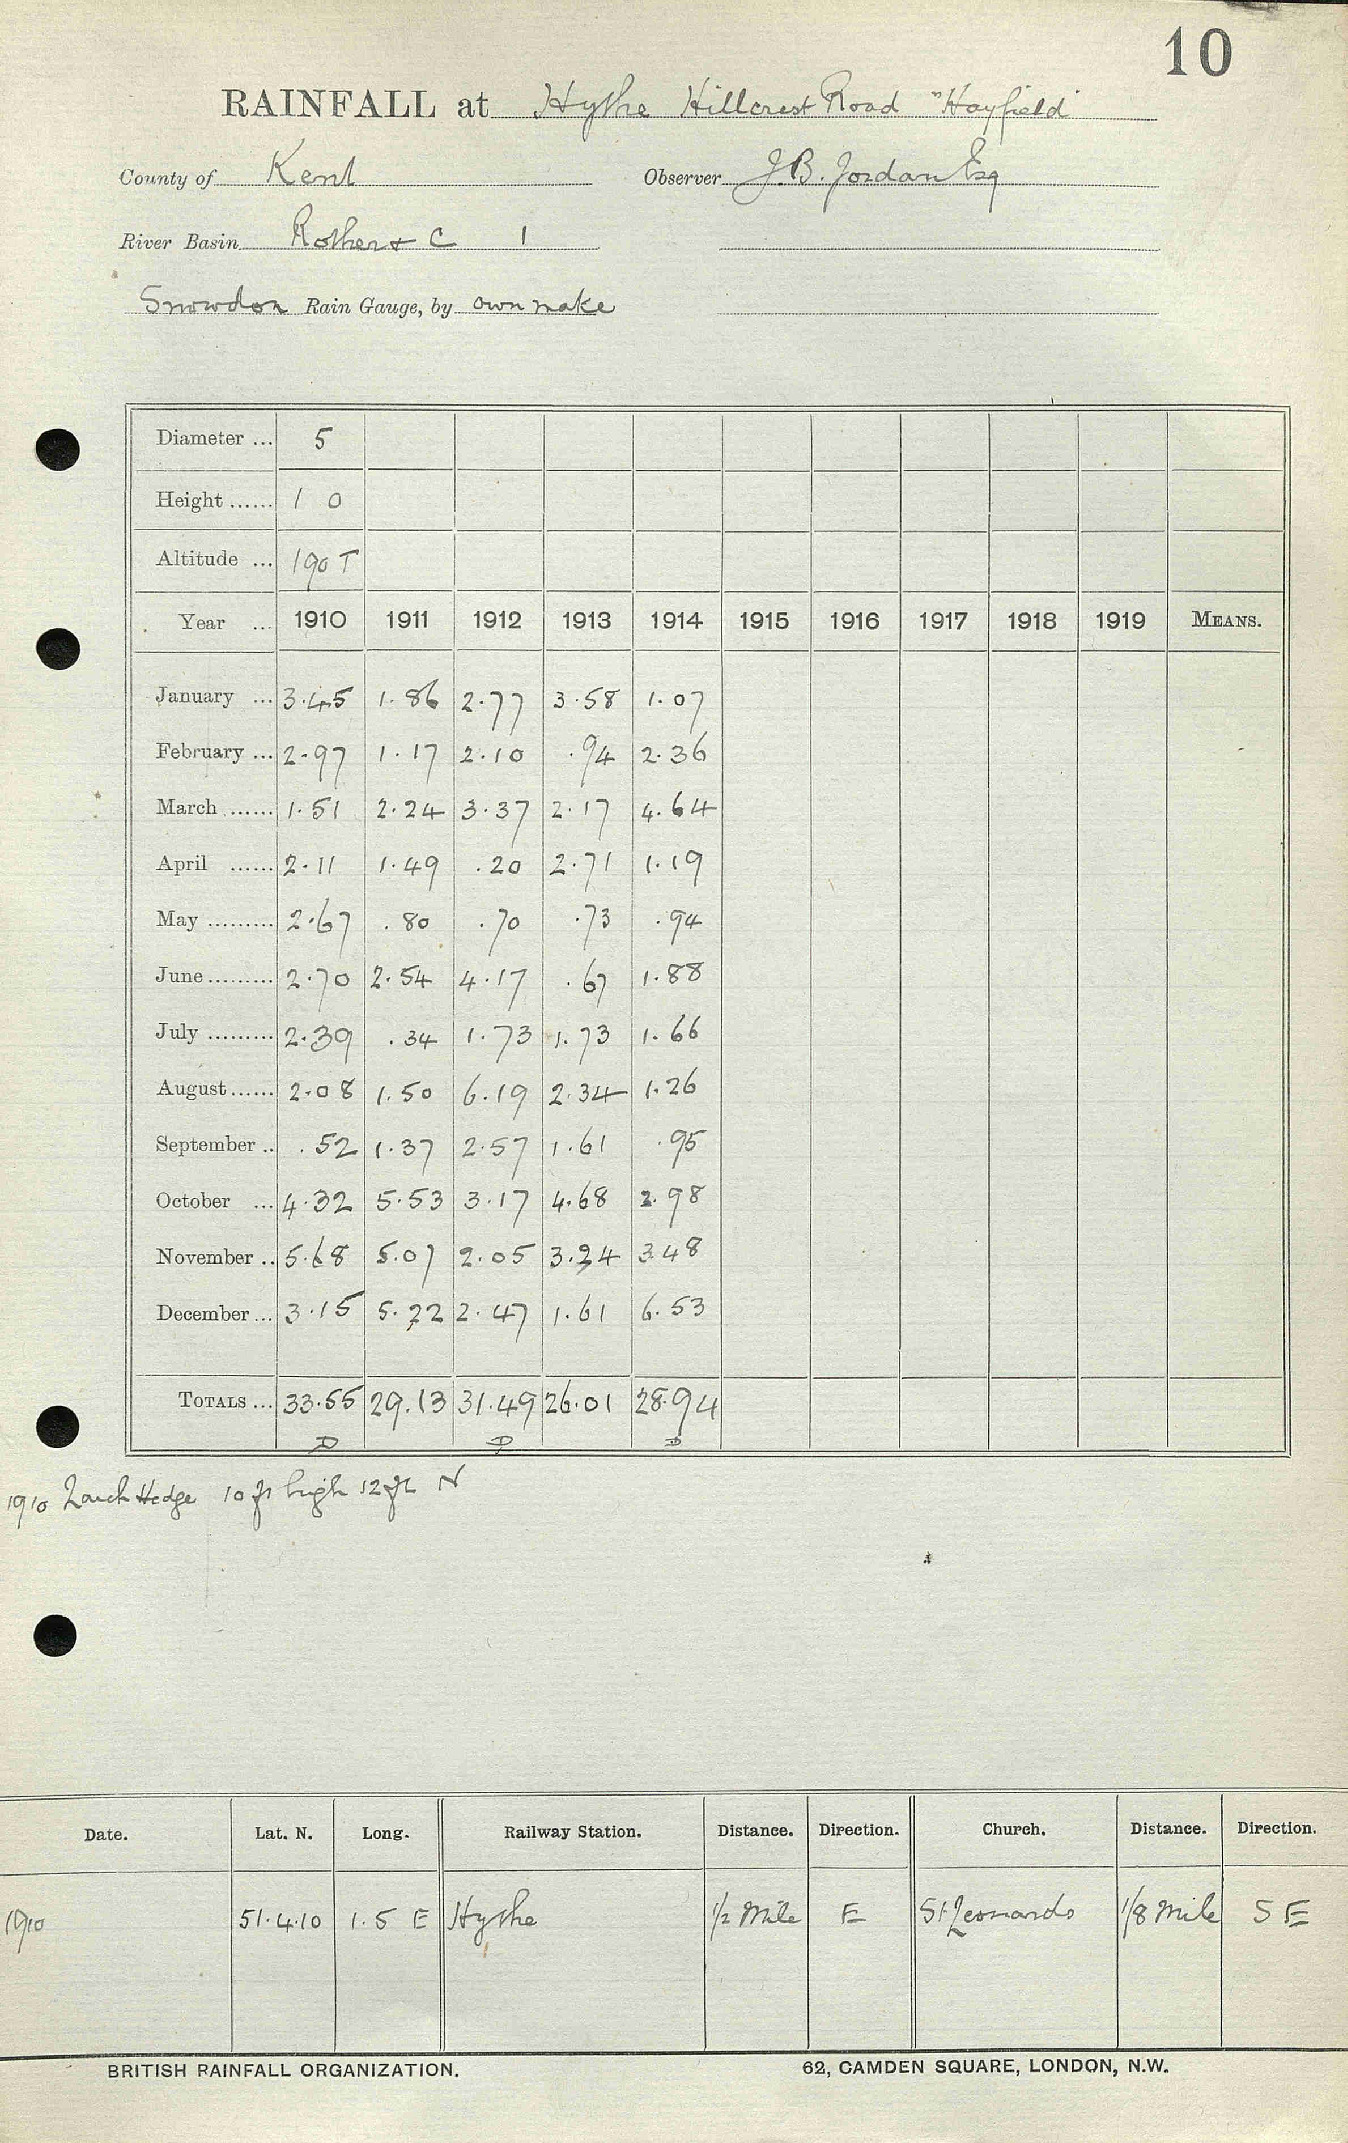 10
RAINFALL at Hythe Hillcrest Road "Hayfield"
County of Kent Observer J.B. Jordan Esq
River Basin Rother & C 1
Snowdon Rain Gauge, by own make
Diameter ... 5
Height ...... 1 0
Altitude ... 190 T
Year ... 1910 1911 1912 1913 1914 1915 1916 1917 1918 1919 MEANS.
January ... 3.45 1.86 2.77 3.58 1.07
February ... 2.97 1.17 2.10 .94 2.36
March ...... 1.51 2.24 3.37 2.17 4.64
April ...... 2.11 1.49 .20 2.71 1.19
May ......... 2.67 .80 .70 .73 .94
June ......... 2.70 2.54 4.17 .67 1.88
July ......... 2.39 .34 1.73 1.73 1.66
August ...... 2.08 1.50 6.19 2.34 1.26
September .. .52 1.37 2.57 1.61 .95
October ... 4.32 5.53 3.17 4.68 2.98
November .. 5.68 5.07 2.05 3.24 3.48
December ... 3.15 5.22 2.47 1.61 6.53
TOTALS ... 33.55 29.13 31.49 26.01 28.94
D D D
1910 Hedge 10 ft high 12 ft N
Date. Lat. N. Long. Railway Station. Distance. Direction. Church. Distance. Direction.
1910 51.4.10 1.5 E Hythe 1/2 Mile E St Leonards 1/8 Mile S E
BRITISH RAINFALL ORGANIZATION. 62, CAMDEN SQUARE, LONDON, N.W.